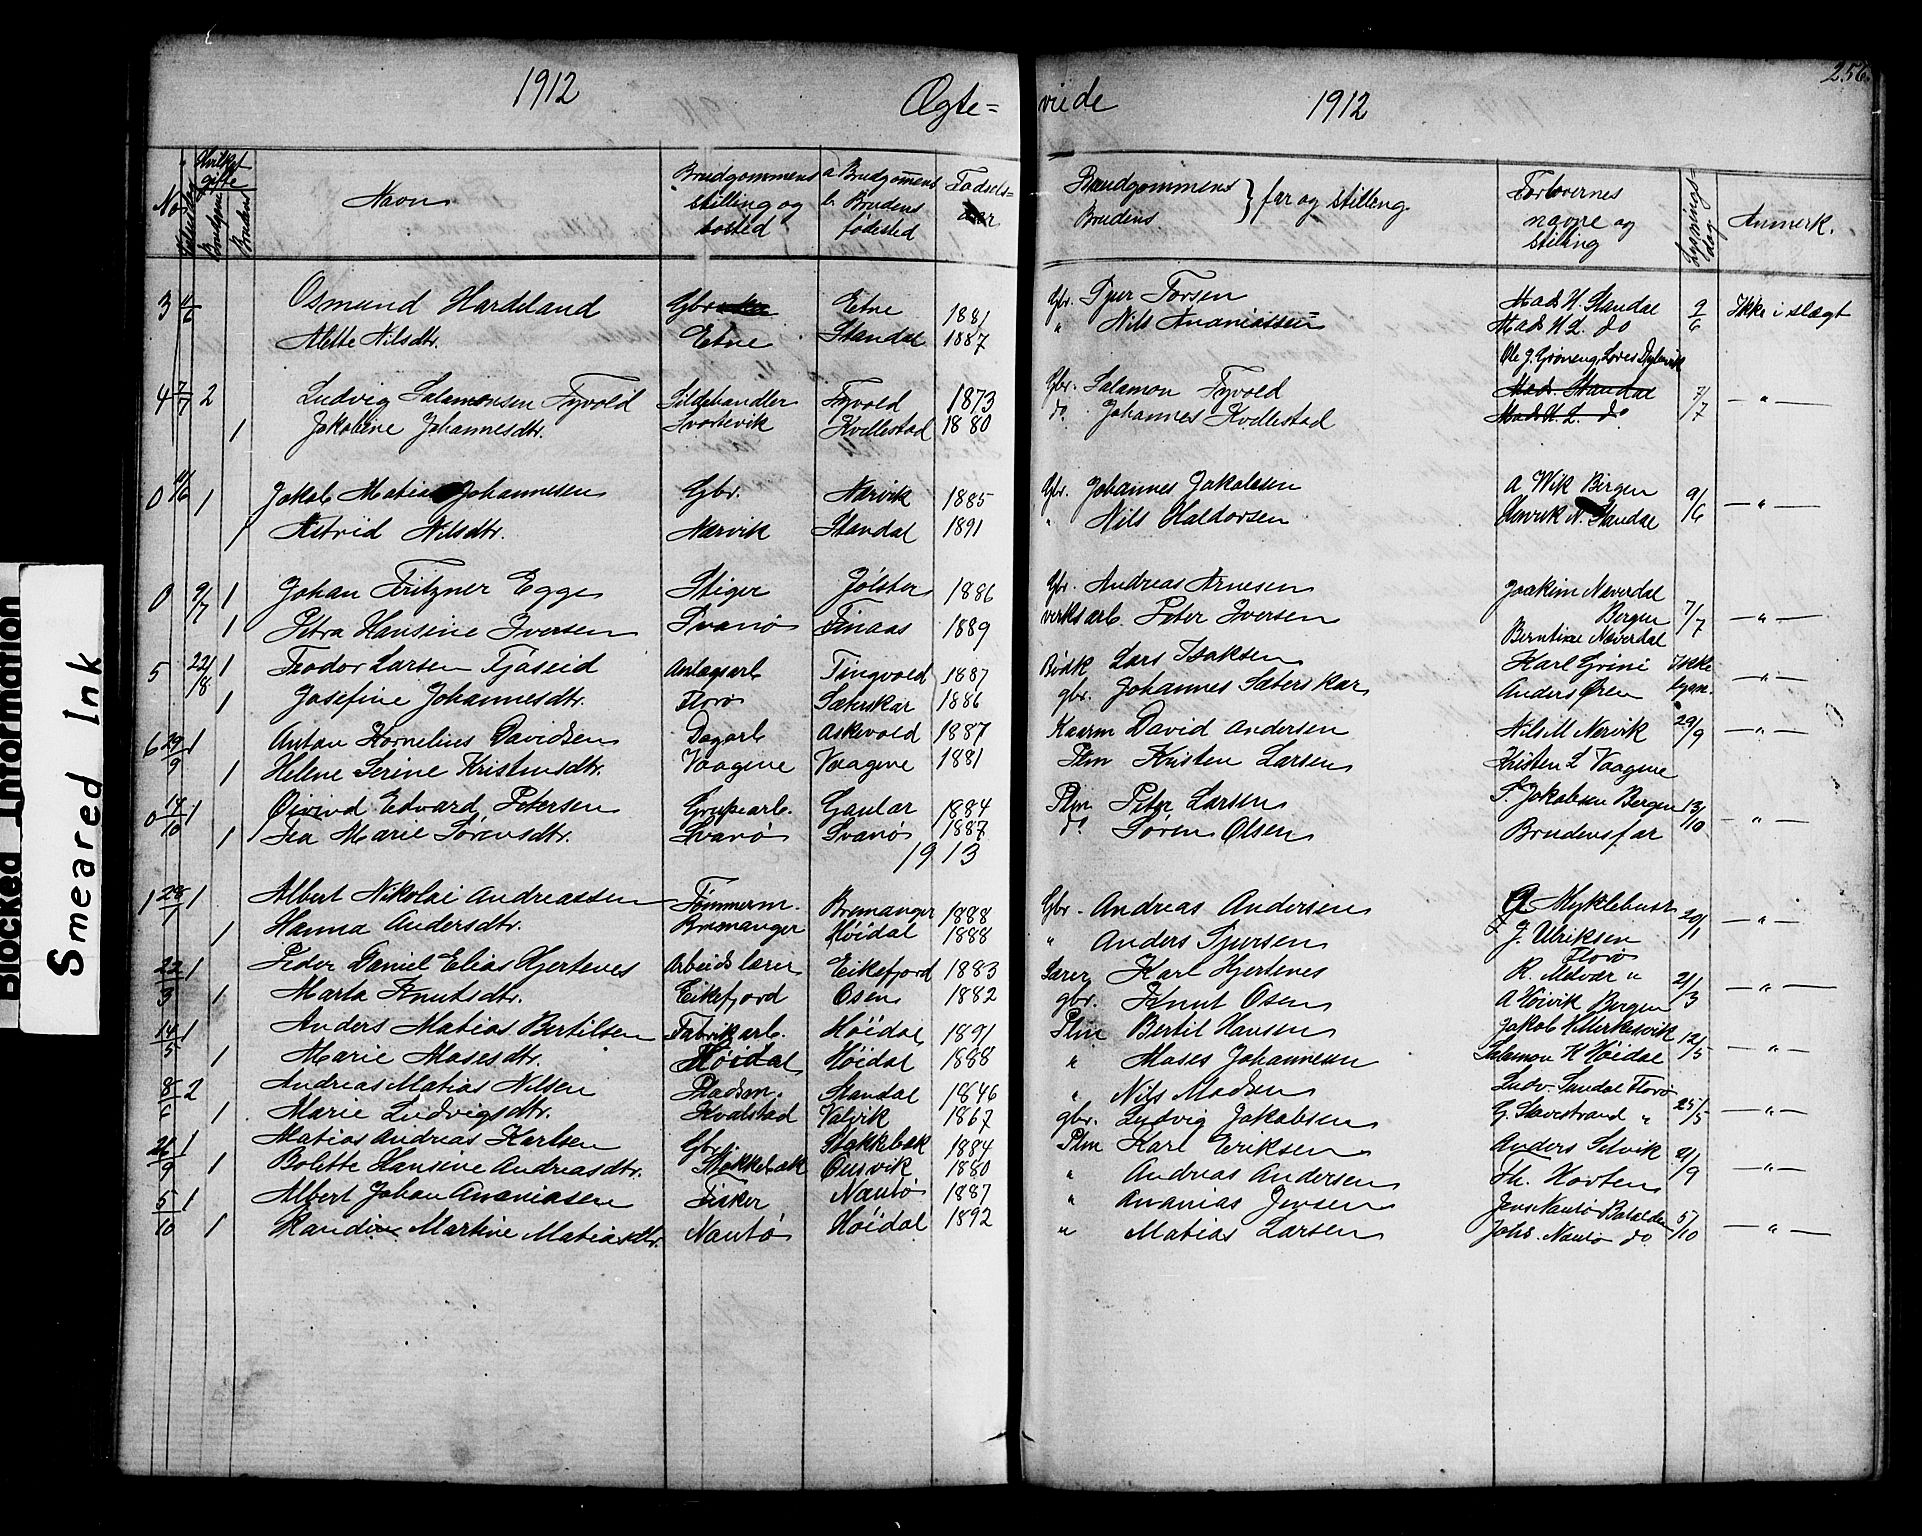 1912 Ægte= viede 1912 256.
No Hvilket gifte Brudgom Bruden Navn Brudgommens stilling og bosted a Brudgomens b. Brudens fødested Fødsels- aar Brudgommens Brudens } far og stilling. Forlovernes navne og stilling Lysnings- dag Anmerk.
3 11/6 Osmund Hardeland Gbr. Etne 1881 Gbr. Sjur Torsen Mads H. Standal 2/6 Ikke i slægt
Alette Nilsdtr. Etne Standal 1887 " Nils Ananiassen Mads H. L. do
Ole J. Grøneng,
4 7/7 2 Ludvig Salamonsen Tyvold Sildehandler Tyvold 1873 Gbr. Salamon Tyvold Mads. Standal 7/7 — " —
1 Jakobine Johannesdtr. Svortevik Kvellestad 1880 do. Johannes Kvellestad Mads H. L. do
0 11/6 1 Jakob Matias Johannesen Gbr. Nærvik 1885 Gbr. Johannes Jakobsen A Wik Bergen 9/6 — " —
1 Astrid Nilsdtr. Nærvik Standal 1891 " Nils Haldorsen Henrik N. Standal
0 9/7 1 Johan Fritzner Egge Stiger Jølster 1886 Gbr. Andreas Arnesen Joakim Næverdal Bergen 7/7 — " —
1 Petra Hansine Iversen Svanø Finaas 1889 verksarb. Peter Iversen Berntine Næverdal
5 22/8 1 Teodor Larsen Tjøseid Anlagsarb Tingvold 1887 Bødk Lars Isaksen Karl Grini Ikke lysn. — " —
1 Josefine Johannesdtr. Florø Sæterskar 1886 gbr. Johannes Sæterskar Anders Øren
6 29/9 1 Anton Kornelius Davidsen Dagarb Askevold 1887 Kaarm David Andersen Nils M Nærvik 29/9 — " —
1 Helene Serine Kristensdtr. Vaagene Vaagene 1881 Plm Kristen Larsen Kristen L Vaagene
0 14/10 1 Øivind Edvard Petersen Grubearb. Gaular 1884 Plm Peter Larsen S. Jakobsen Bergen 13/10 — " —
1 Tea Marie Sørensdtr. Svanø Svanø 1887 do Søren Olsen Brudens far
1913
1 28/1 1 Albert Nikolai Andreassen Tømmerm. Bremanger 1888 Gbr. Andreas Andersen Myklebust 20/1 — " —
1 Hanna Andersdtr. Bremanger Høidal 1888 " Anders Sjursen J. Ulriksen Florø
22/3 1 Peder Daniel Elias Hjertenes Arbeidslærer Eikefjord 1883 Lærer Karl Hjertenes R. Melvær " 21/3 — " —
1 Marta Knutsdtr. Eikefjord Osen 1882 gbr. Knut Osen A Høivik Bergen
14/5 1 Anders Matias Bertilsen Fabrikarb. Høidal 1891 Plm Bertil Hansen Jakob 12/5 — " —
1 Marie Mosesdtr. Høidal Høidal 1888 " Moses Johannesen Salamon K Høidal
8/6 2 Andreas Matias Nilsen Pladsm. Standal 1846 " Nils Madsen Ludv. Sandal Florø
1 Marie Ludvigsdtr. Kvalstad Valvik 1867 gbr. Ludvig Jakobsen G. Savestrand " 25/5 — " —
26/9 1 Matias Andreas Karlsen Gbr. Stokkebøk 1884 Plm Karl Eriksen Anders Selvik 21/9 — " —
1 Bolette Hansine Andreasdtr. Stokkebøk Ousvik 1880 " Andreas Andersen Th. Horten
5/10 1 Albert Johan Ananiasen Fisker Nautø 1887 " Ananias Jensen Jens Nautø Batalden 5/10 — " —
1 Randine Martine Matiasdtr. Nautø Høidal 1892 " Matias Larsen Johs. Nautø do
Blocked Information
Smeared Ink